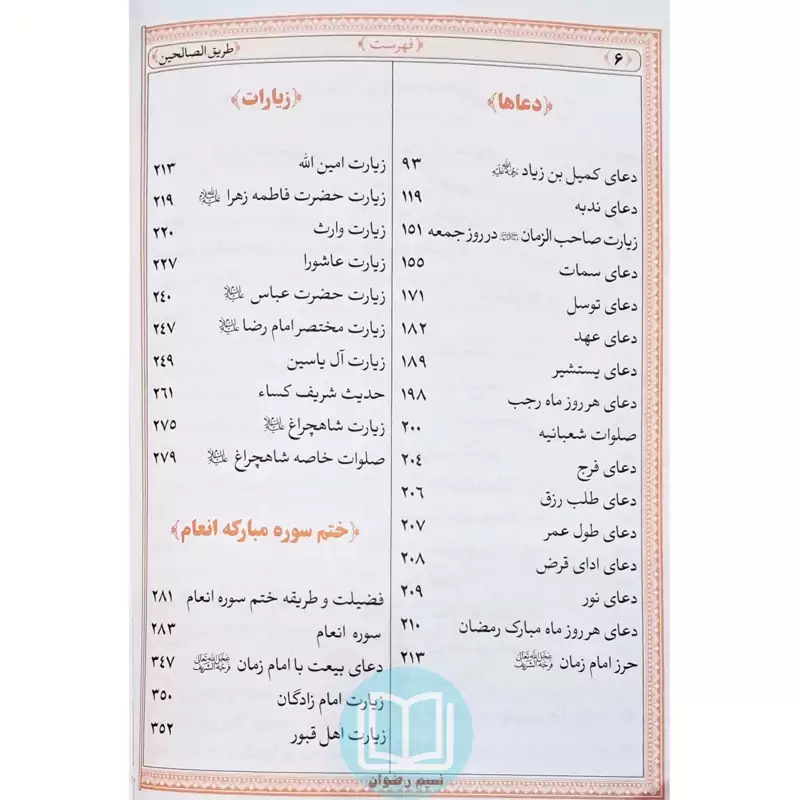 ۶
﴿فهرست﴾
﴿طریق الصالحین﴾
﴿دعاها﴾
دعای کمیل بن زیاد رحمة الله علیه ۹۳
دعای ندبه ۱۱۹
زیارت صاحب الزمان در روز جمعه ۱۵۱
دعای سمات ۱۵۵
دعای توسل ۱۷۱
دعای عهد ۱۸۲
دعای یستشیر ۱۸۹
دعای هر روز ماه رجب ۱۹۸
صلوات شعبانیه ۲۰۰
دعای فرج ۲۰۴
دعای طلب رزق ۲۰۶
دعای طول عمر ۲۰۷
دعای ادای قرض ۲۰۸
دعای نور ۲۰۹
دعای هر روز ماه مبارک رمضان ۲۱۰
حرز امام زمان عجل الله تعالی فرجه الشریف ۲۱۳
﴿زیارات﴾
زیارت امین الله ۲۱۳
زیارت حضرت فاطمه زهرا ۲۱۹
زیارت وارث ۲۲۰
زیارت عاشورا ۲۲۷
زیارت حضرت عباس ۲۴۰
زیارت مختصر امام رضا ۲۴۷
زیارت آل یاسین ۲۴۹
حدیث شریف کساء ۲۶۱
زیارت شاهچراغ ۲۷۵
صلوات خاصه شاهچراغ ۲۷۹
﴿ختم سوره مبارکه انعام﴾
فضیلت و طریقه ختم سوره انعام ۲۸۱
سوره انعام ۲۸۳
دعای بیعت با امام زمان عجل الله تعالی فرجه الشریف ۳۴۷
زیارت امام زادگان ۳۵۰
زیارت اهل قبور ۳۵۲
نسیم رضوان